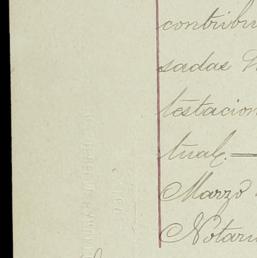 contribu
sadas
testacion
tual.—
Marzo
Notari